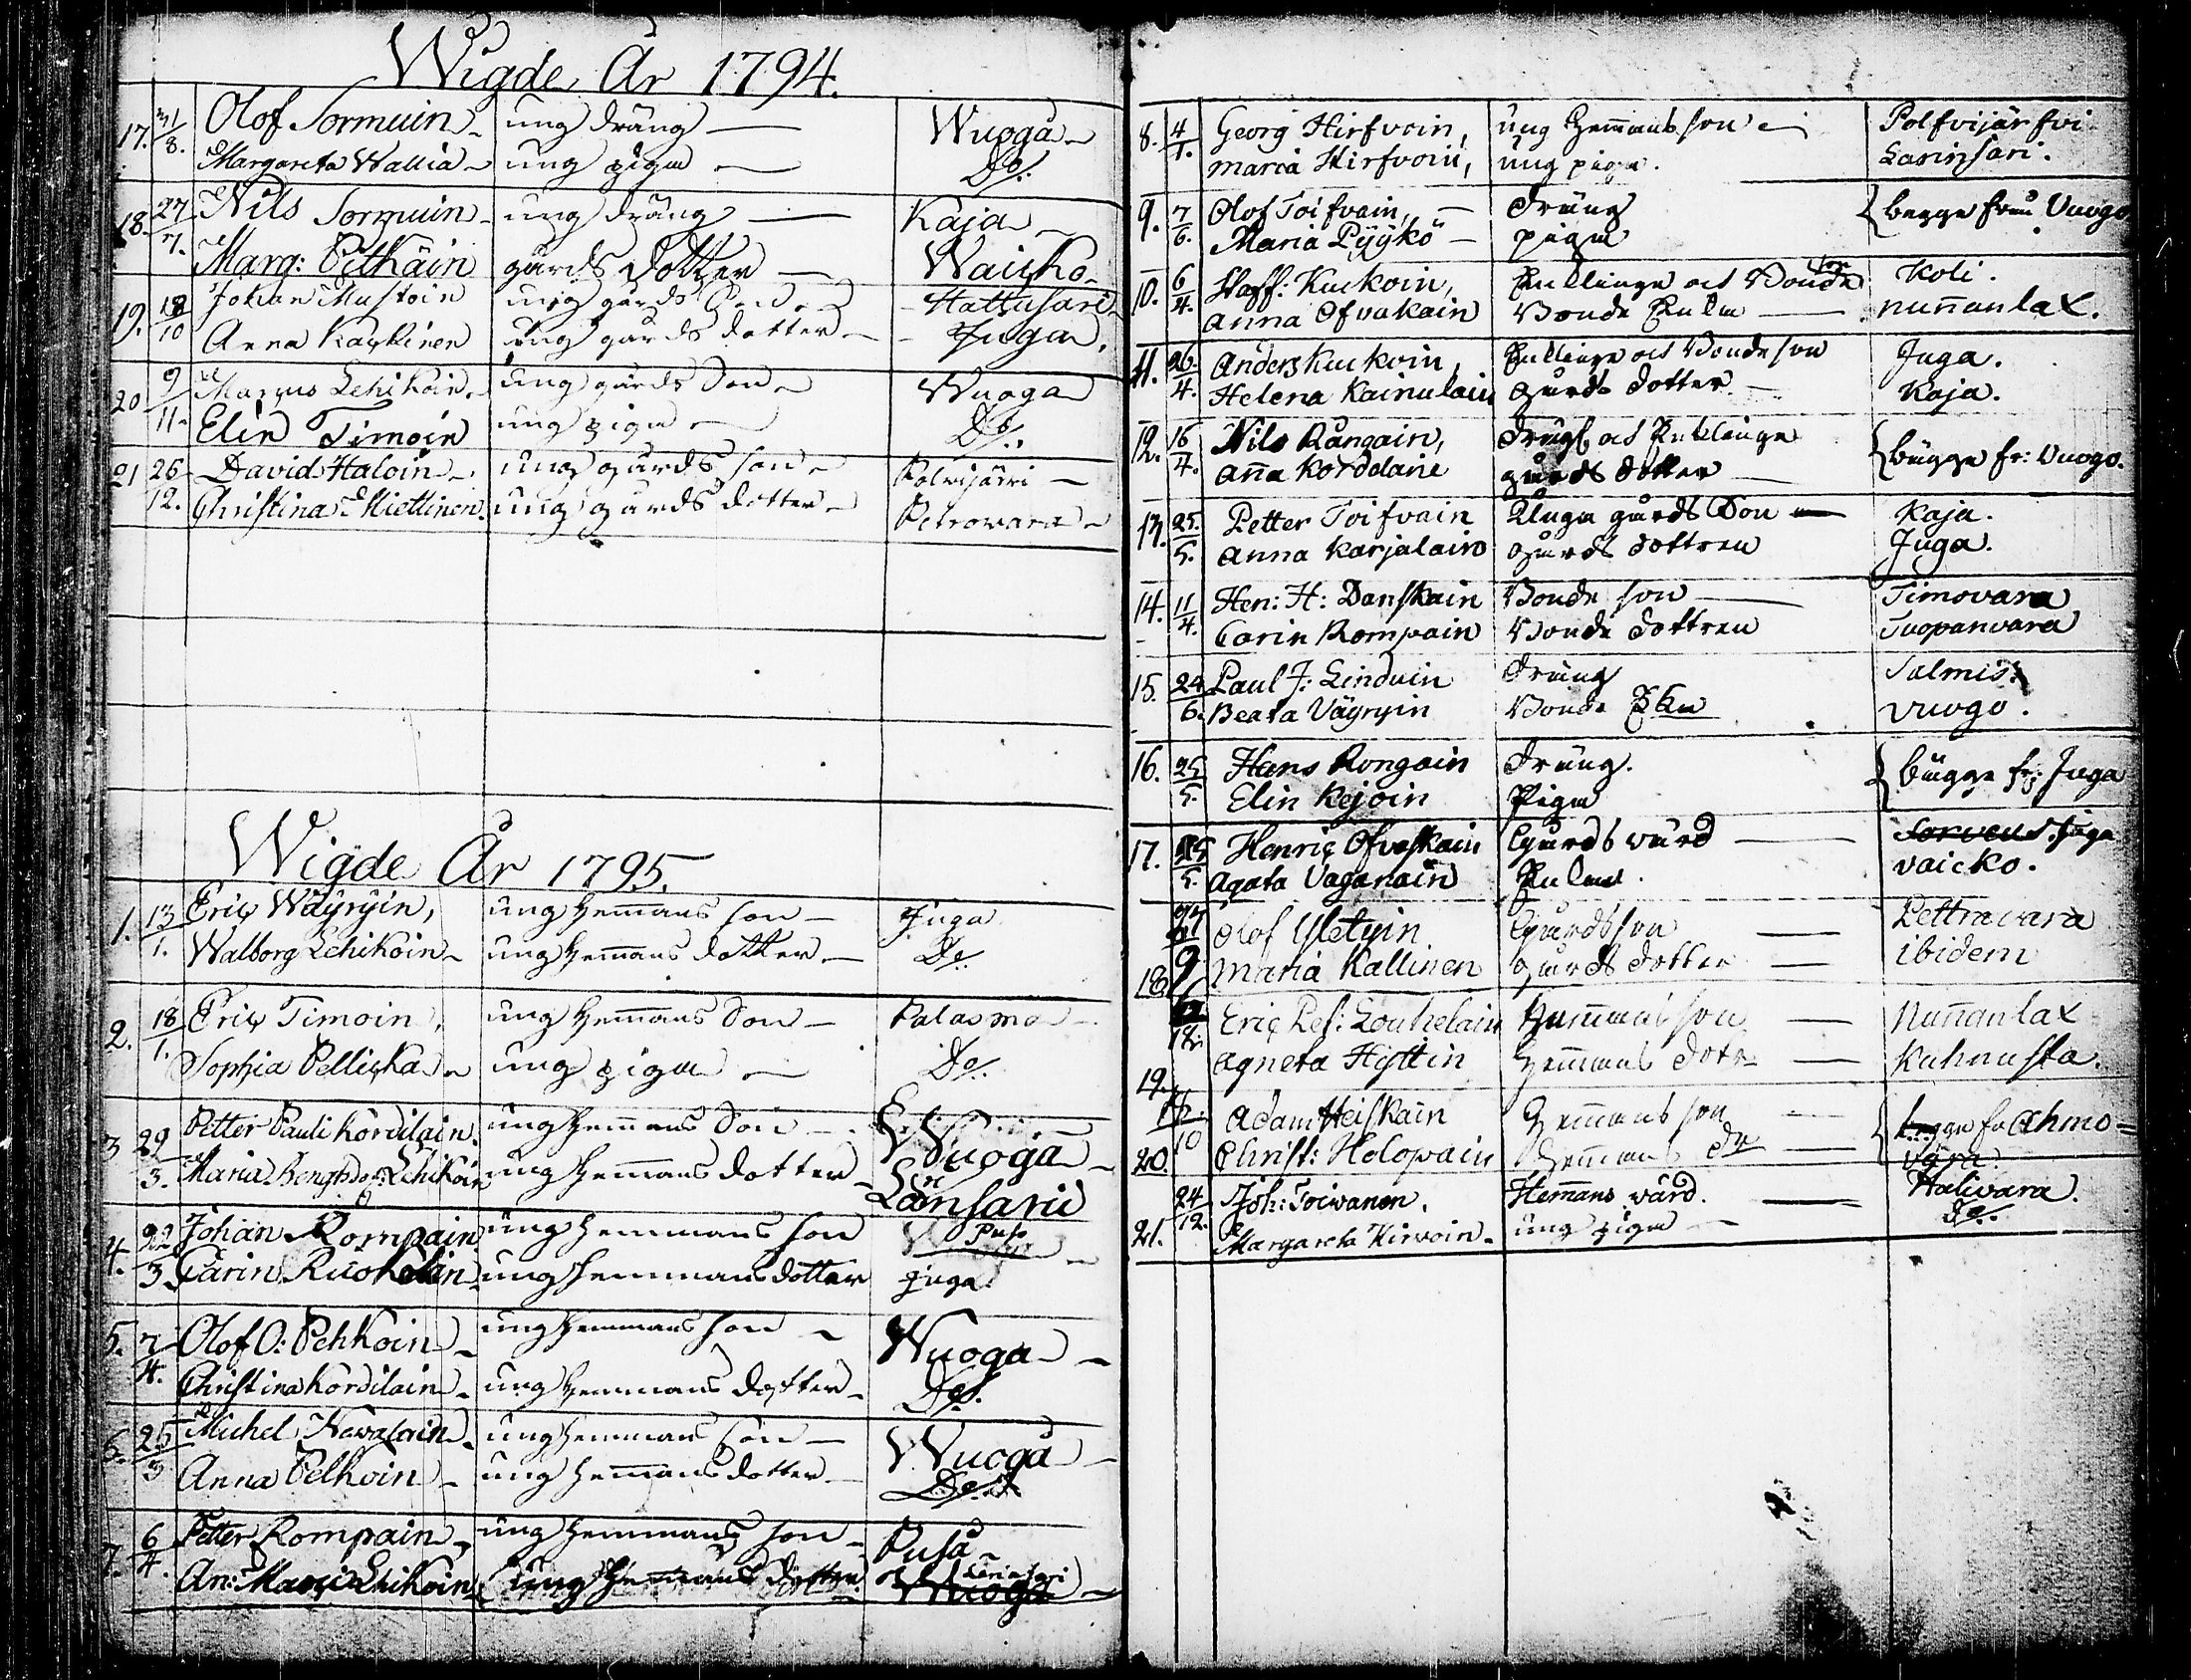 Wigde År 1794.
17. 31/8. Olof Sormuin ung dräng Wuoga
Margareta Wallia ung piga Do.
18. 27/7. Nils Sormuin ung dräng Kaja
Marg: Pitkäin gårds dotter Waisko
19. 18/10 Johan Mustoin ung gårds Son Hattusari
Anna Kaykinen ung gårds dotter Juga.
20 9/11. Marcus Lehikoin ung gårds Son Wuoga
Elin Timoin ung piga Do.
21 26/12. David Haloin ung gårds son Polvijärvi
Christina Miettinen. ung gårds dotter Petrowara
Wigde År 1795.
1. 13/1. Eric Wäyryin, ung hemans son Juga
Walborg Lehikoin ung hemans dotter Do.
2. 18/1. Eric Timoin, ung hemans Son Palasma
Sophia Pellicka ung piga Do.
3 29/3. Petter Pauli Kordilain. ung hemans Son Wuoga
Maria Bengtsdor: Lehikoin ung hemans dotter Länsarii
4. 22/3 Johan Rompain ung hemmans son Puso
Carin Ruokolain ung hemmans dotter Juga
5. 7/4. Olof O: Pehkoin ung hemmans son Wuoga
Christina Kordilain ung hemmans dotter Do.
6. 25/3 Michel Newalain ung hemmans son Wuoga
Anna Pelkoin ung hemans dotter Do.
7. 6/4. Petter Rompain, ung hemmans son Pusa
An: Maria Lehikoin ung hemmans dotter Lärinsari Wuoga
8. 4/1. Georg Hirfvoin, ung hemmans son Polfvijärfvi
Maria Hirfvoin, ung piga. Larinsari.
9. 7/6. Olof Toifvain, dräng begge från Vuogo
Maria Pyykö piga
10. 6/4. Staff: Kuckoin, Enklinge och Bonde son Koli.
Anna Ofvakain Bonde Enka nunnanlax.
11. 26/4. Anders Kuckoin, Enklinge och Bonde son Juga.
Helena Kainulain gårds dotter Kaja.
12. 16/4. Nils Rångain, dräng och Enklinge bägge fr: Vuogo.
Anna Kordelaine gårds dotter
13. 25./5. Petter Toifvain Unga gårds Son Kaja.
Anna Karjalain gårds dottren Juga.
14. 11/4. Hen: H: Danskain Bonde son Timovara
Carin Rompain Bonde dottren Tuopanvara
15. 24/6. Paul J: Linduin dräng Salmis
Beata Väyryin Bonde Eka vuogo.
16. 25/5. Hans Rongain dräng. bägge fr: Juga
Elin Kejoin Piga
17. 25/5. Henric Ofvaskain Gårds värd Juga
Agata Vaganain Enka. vaicko.
18 Olof Yletyin Gårds son Pettravara
Maria Kallinen gårds dotter ibidem
19. Eric Pet: Louhelain hemmans son Nunnanlax
Agneta Hyttin hemmans dotr Kuhnusta.
20. Adam Heiskain hemmans son begge fr Ahmo=
Christ: Holopain hemmans dr vara.
21. 24/12. Joh: Toiwanen. Hemans wärd. Halivara.
Margareta Hirvoin ung piga Do.